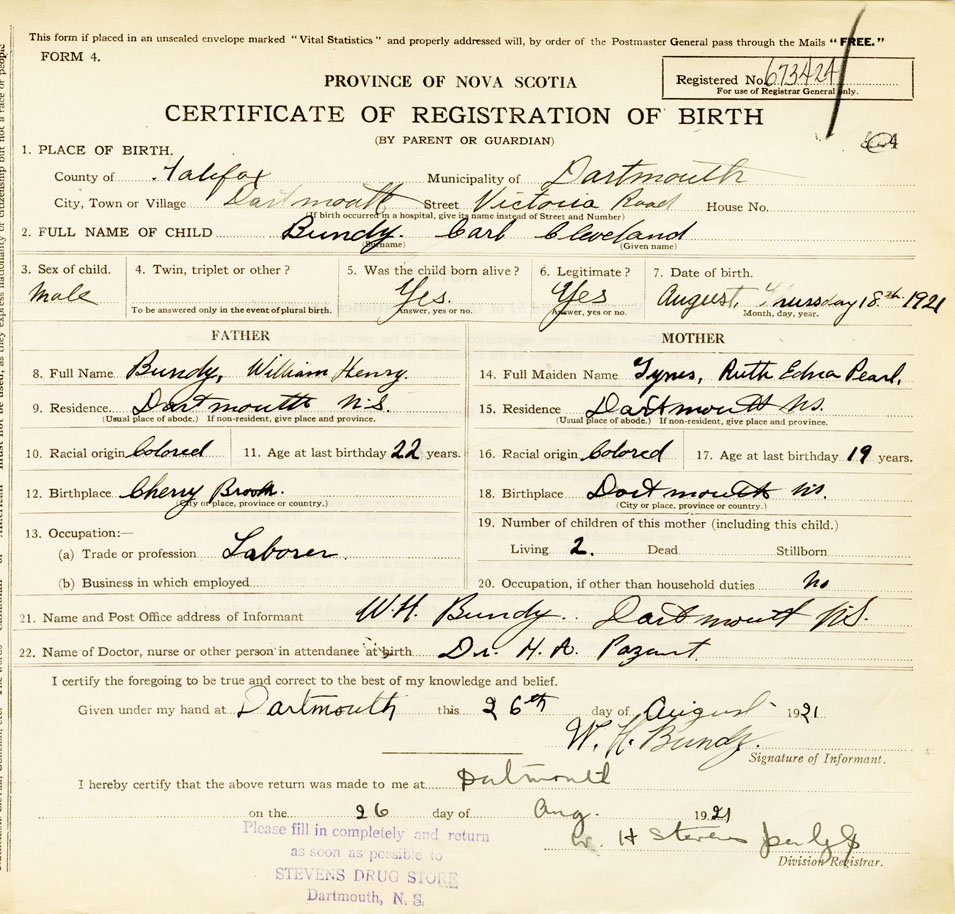 This form if placed in an unsealed envelope marked "Vital Statistics" and properly addressed will, by order of the Postmaster General pass through the Mails "FREE."
FORM 4.
Registered No. 673424
For use of Registrar General only.
PROVINCE OF NOVA SCOTIA
CERTIFICATE OF REGISTRATION OF BIRTH
(BY PARENT OR GUARDIAN)
1. PLACE OF BIRTH.
County of Halifax Municipality of Dartmouth
City, Town or Village Dartmouth Street Victoria Road House No.
(If birth occurred in a hospital, give its name instead of Street and Number)
2. FULL NAME OF CHILD Bundy. Carl Cleveland
(Surname) (Given name)
3. Sex of child. Male
4. Twin, triplet or other?
To be answered only in the event of plural birth.
5. Was the child born alive? Yes.
Answer, yes or no.
6. Legitimate? Yes
Answer, yes or no.
7. Date of birth.
August, Thursday 18th 1921
Month, day, year.
FATHER
8. Full Name Bundy, William Henry.
9. Residence Dartmouth N.S.
(Usual place of abode.) If non-resident, give place and province.
10. Racial origin Colored 11. Age at last birthday 22 years.
12. Birthplace Cherry Brook.
(City or place, province or country.)
13. Occupation:—
(a) Trade or profession Laborer.
(b) Business in which employed
MOTHER
14. Full Maiden Name Tynes, Ruth Edna Pearl,
15. Residence Dartmouth N.S.
(Usual place of abode.) If non-resident, give place and province.
16. Racial origin Colored 17. Age at last birthday 19 years.
18. Birthplace Dartmouth N.S.
(City or place, province or country.)
19. Number of children of this mother (including this child.)
Living 2. Dead Stillborn
20. Occupation, if other than household duties No
21. Name and Post Office address of Informant W.H. Bundy. Dartmouth N.S.
22. Name of Doctor, nurse or other person in attendance at birth Dr. H. A. Pazant.
I certify the foregoing to be true and correct to the best of my knowledge and belief.
Given under my hand at Dartmouth this 26th day of August 1921
W. H. Bundy.
Signature of Informant.
I hereby certify that the above return was made to me at Dartmouth
on the 26 day of Aug. 1921
W. H Stevens
Division Registrar.
Please fill in completely and return
as soon as possible to
STEVENS DRUG STORE
Dartmouth, N. S.